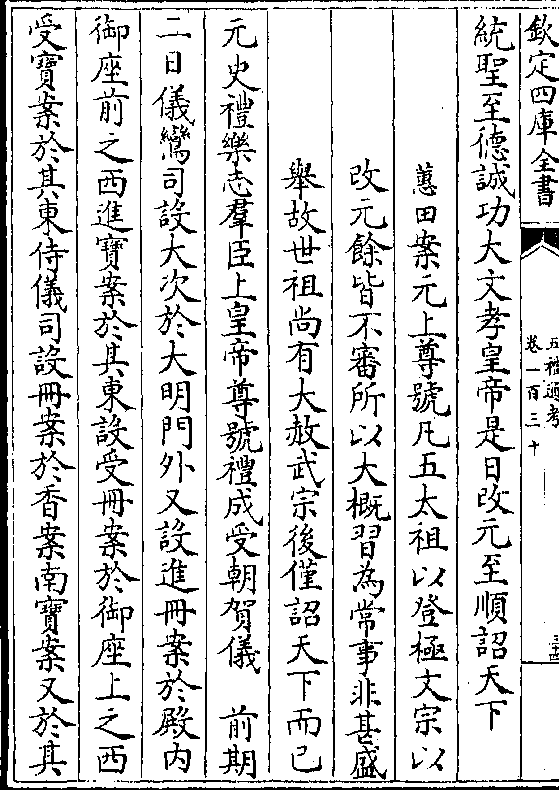 欽定四庫全書
五禮通考
卷一百三十
統聖至德誠功大文孝皇帝是日改元至順詔天下
蕙田案元上尊號凡五太祖以登極文宗以
改元餘皆不審所以大概習為常事非甚盛
舉故世祖尚有大赦武宗後僅詔天下而已
元史禮樂志羣臣上皇帝尊號禮成受朝賀儀　前期
二日儀鸞司設大次於大明門外又設進冊案於殿内
御座前之西進寶案於其東設受冊案於御座上之西
受寶案於其東侍儀司設冊案於香案南寶案又於其